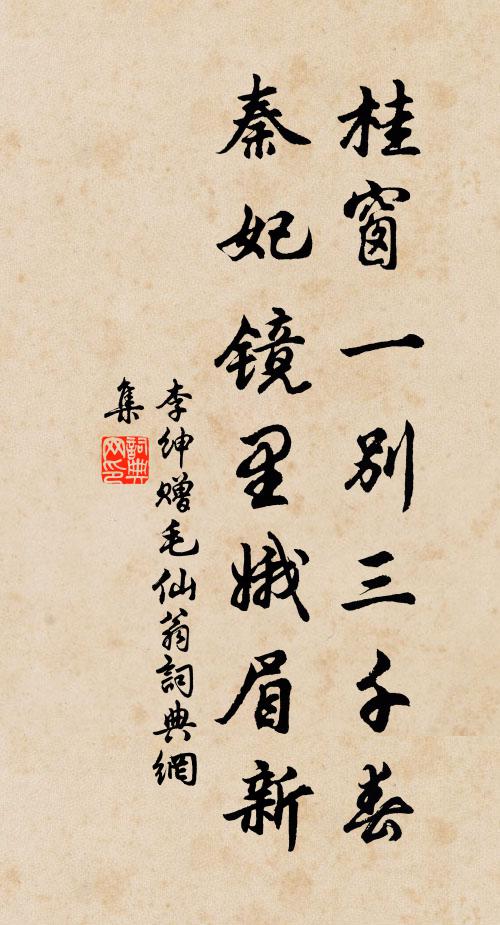 桂窗一别三千春
秦妃镜里娥眉新
李绅赠毛仙翁詞典網
集
詞典
网印